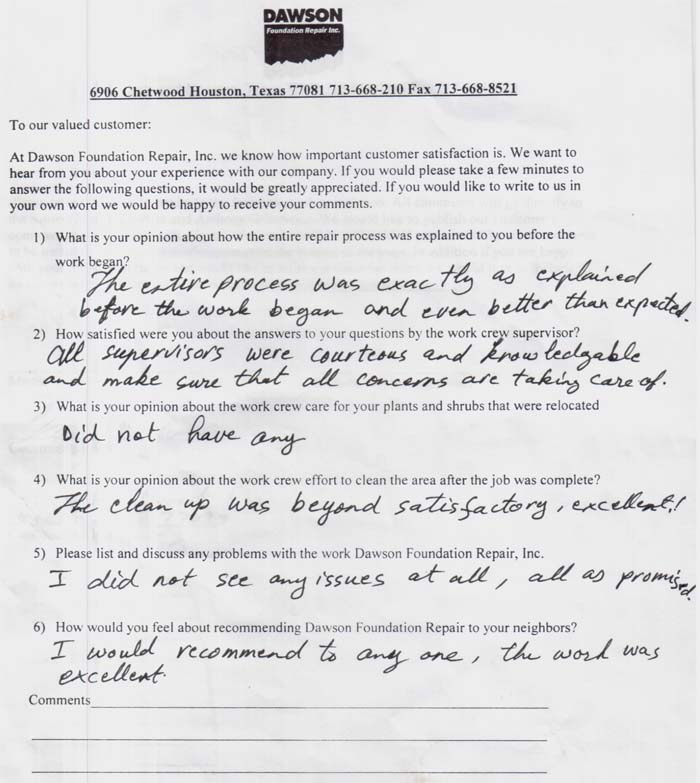 DAWSON
Foundation Repair Inc.
6906 Chetwood Houston, Texas 77081 713-668-210 Fax 713-668-8521
To our valued customer:
At Dawson Foundation Repair, Inc. we know how important customer satisfaction is. We want to
hear from you about your experience with our company. If you would please take a few minutes to
answer the following questions, it would be greatly appreciated. If you would like to write to us in
your own word we would be happy to receive your comments.
1) What is your opinion about how the entire repair process was explained to you before the
work began?
The entire process was exactly as explained
before the work began and even better than expected.
2) How satisfied were you about the answers to your questions by the work crew supervisor?
All supervisors were courteous and knowledgable
and make sure that all concerns are taking care of.
3) What is your opinion about the work crew care for your plants and shrubs that were relocated
Did not have any
4) What is your opinion about the work crew effort to clean the area after the job was complete?
The clean up was beyond satisfactory, excellent!
5) Please list and discuss any problems with the work Dawson Foundation Repair, Inc.
I did not see any issues at all, all as promised.
6) How would you feel about recommending Dawson Foundation Repair to your neighbors?
I would recommend to any one, the work was
excellent.
Comments